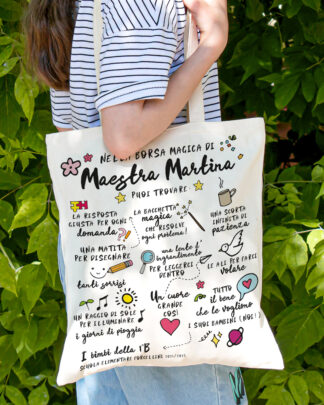 NELLA BORSA MAGICA DI
Maestra Martina
PUOI TROVARE
LA RISPOSTA
GIUSTA PER OGNI
domanda
LA BACCHETTA
magica
CHE RISOLVE
ogni problema
UNA SCORTA
INFINITA DI
pazienza
UNA MATITA
PER DISEGNARE
tanti sorrisi
una lente
d'ingrandimento
PER LEGGERE
DENTRO
Le ALI PER FARCI
volare
UN RAGGIO DI SOLE
PER ILLUMINARE
i giorni di pioggia
Un cuore
GRANDE
COSÌ
TUTTO
il bene
che LE VOGLIONO
I SUOI BAMBINI (NOI!)
I bimbi della 1ªB
SCUOLA ELEMENTARE